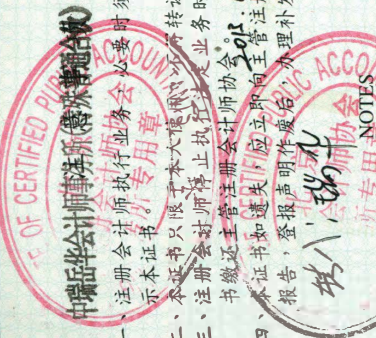 中瑞岳华会计师事务所(特殊普通合伙)
一、注册会计师执行业务,必要时须
示本证书。
二、本证书只限于本人使用,不得转
三、注册会计师停止执行法定业务时
书缴还主管注册会计师协会。
四、本证书如遗失,应立即向主管注册
报告,登报声明作废后,办理补发
NOTES
OF CERTIFIED PUBLIC ACCOUNT
专用章
CERTIFIED PUBLIC ACCO
师协会
专用章